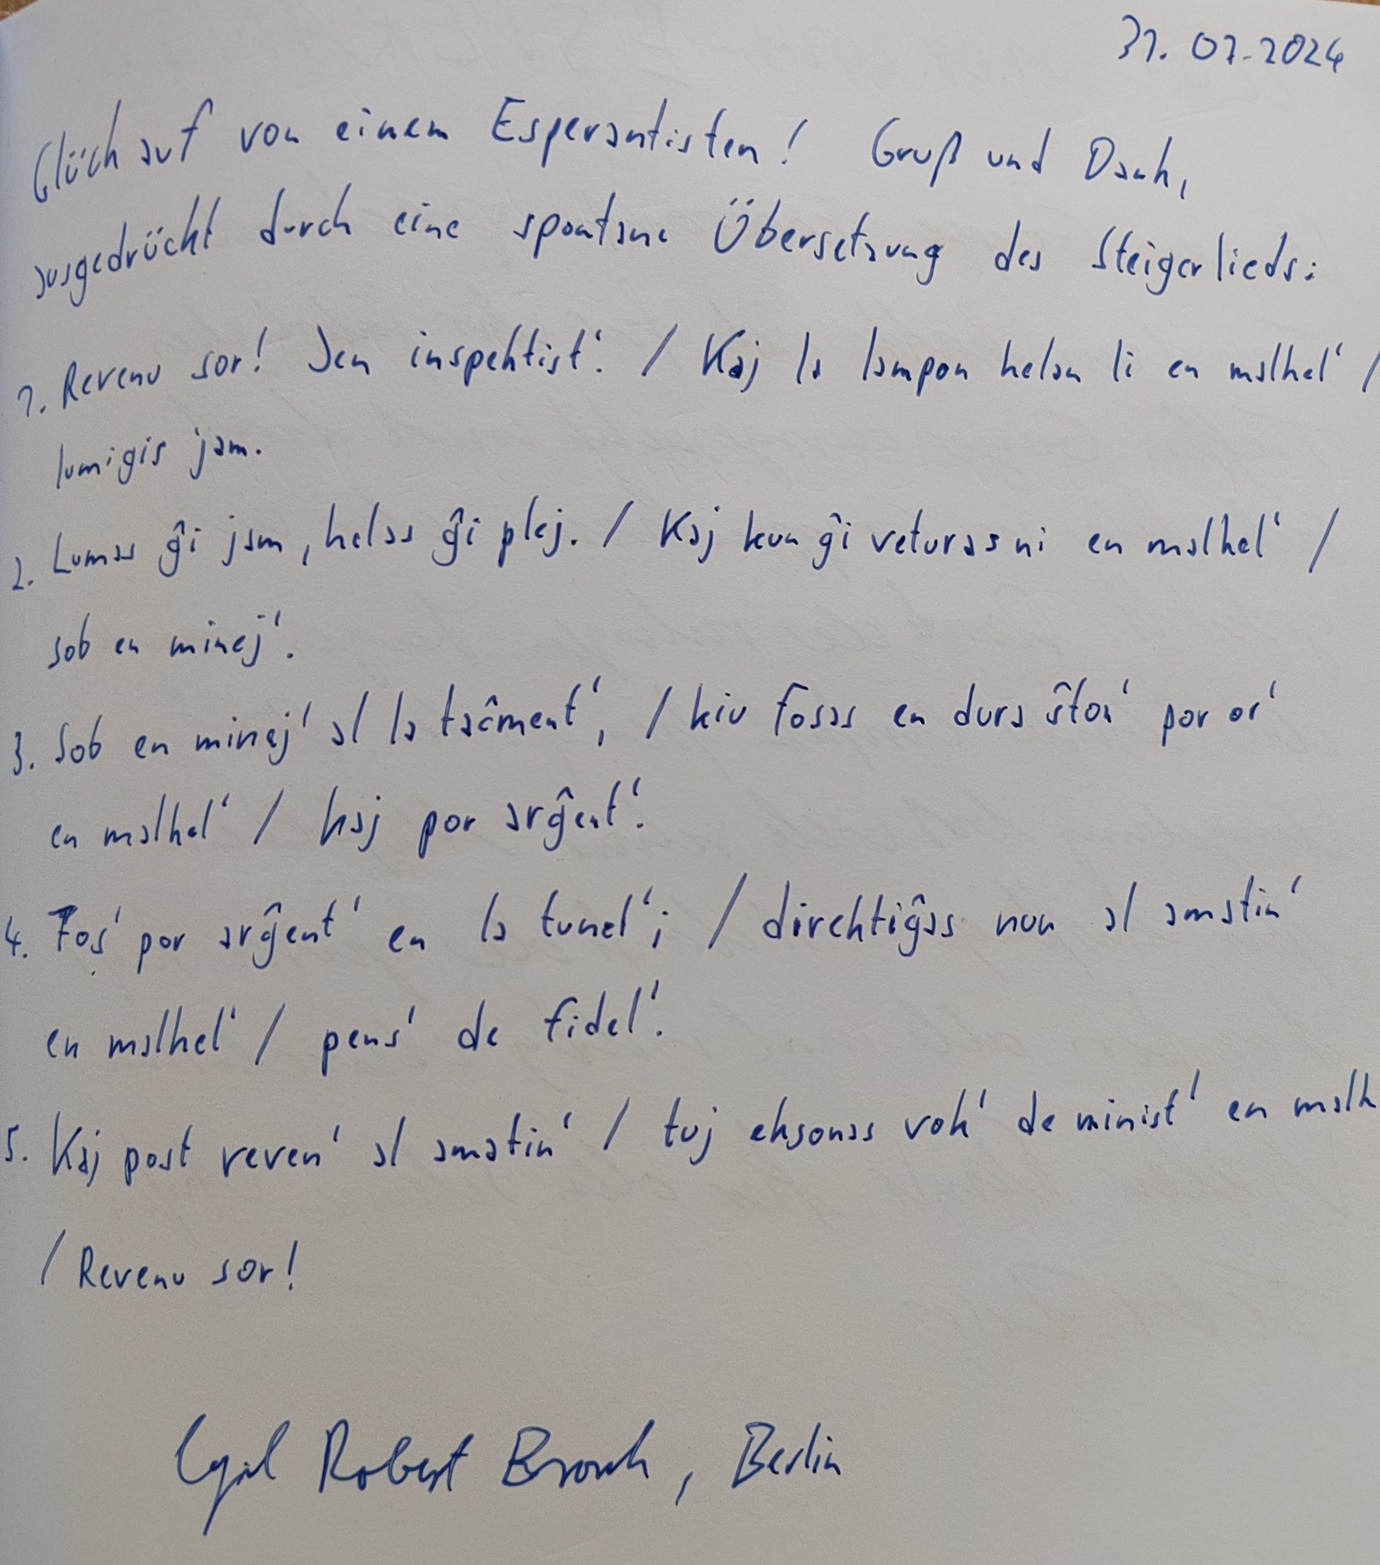 31.07.2024
Glück auf von einem Esperantisten! Gruß und Dank,
ausgedrückt durch eine spontane Übersetzung des Steigerlieds:
1. Revenu sor! Jen inspektist'. / Kaj la lampon helan li en malhel' /
lumigis jam.
2. Lumas ĝi jam, helas ĝi plej. / Kaj kun ĝi veturas ni en malhel' /
sob en minej'.
3. Sob en minej' al la taĉment', / kiu fosas en dura ŝton' por or'
en malhel' / kaj por arĝent'.
4. Fos' por arĝent' en la tunel'; / direktiĝas nun al amatin'
en malhel' / pens' de fidel'.
5. Kaj post reven' al amatin' / tuj eksonas vok' de minist' en malh
/ Revenu sor!
Robert Berlin